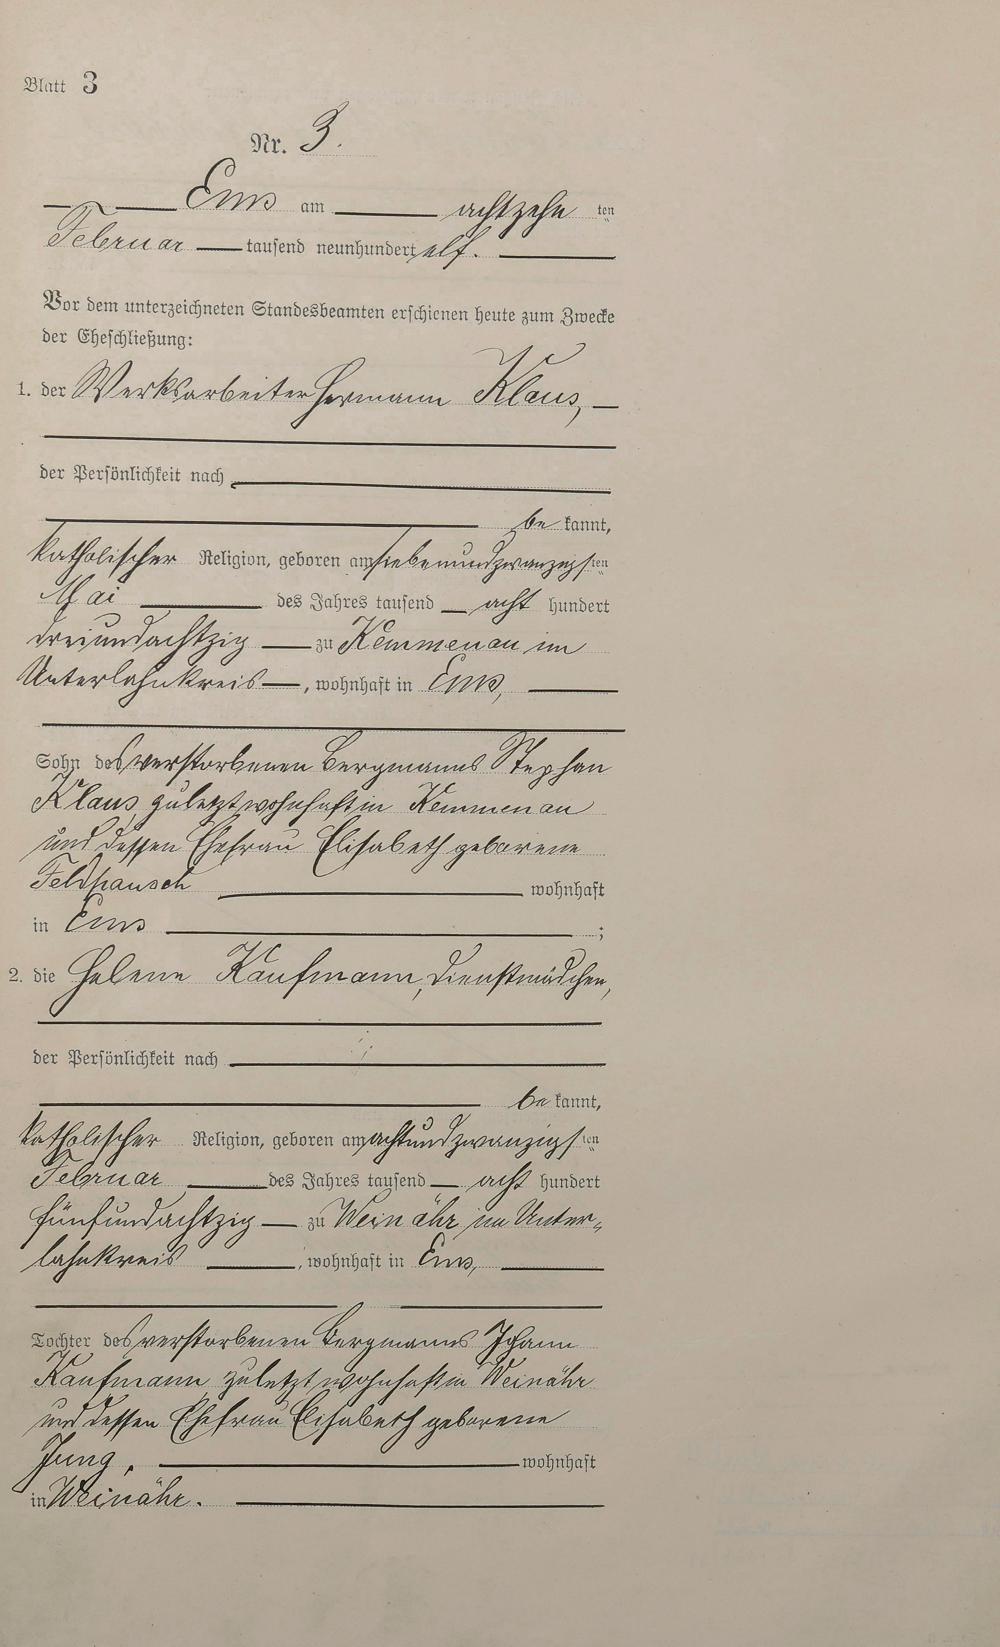 Blatt 3
Nr. 3.
Ems am achtzehn ten
Februar tausend neunhundert elf.
Vor dem unterzeichneten Standesbeamten erschienen heute zum Zwecke
der Eheschließung:
1. der Werksarbeiter Hermann Klaus,
der Persönlichkeit nach
be kannt,
katholischer Religion, geboren am siebenundzwanzigs ten
Mai des Jahres tausend acht hundert
dreiundachtzig zu Kemmenau im
Unterlahnkreis, wohnhaft in Ems,
Sohn des verstorbenen Bergmanns Stephan
Klaus, zuletzt wohnhaft in Kemmenau
und dessen Ehefrau Elisabeth geborene
Feldhausch wohnhaft
in Ems ;
2. die Helene Kaufmann, Dienstmädchen,
der Persönlichkeit nach
be kannt,
katholischer Religion, geboren am achtundzwanzigs ten
Februar des Jahres tausend acht hundert
fünfundachtzig zu Weinähr im Unter-
lahnkreis, wohnhaft in Ems,
Tochter des verstorbenen Bergmanns Johann
Kaufmann, zuletzt wohnhaft in Weinähr
und dessen Ehefrau Elisabeth geborene
Jung, wohnhaft
in Weinähr.